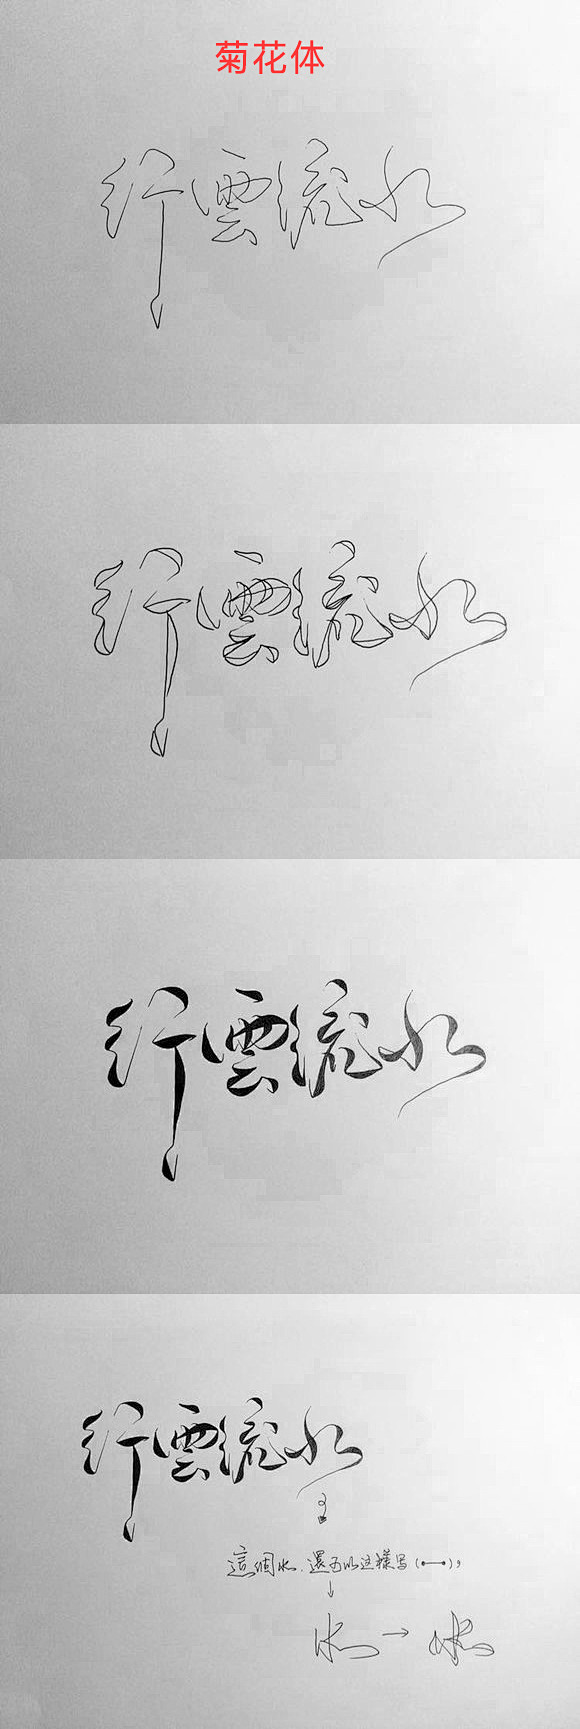 菊花体
行雲流水
行雲流水
行雲流水
行雲流水
這個水.還可以这樣写(•—•),
水→水